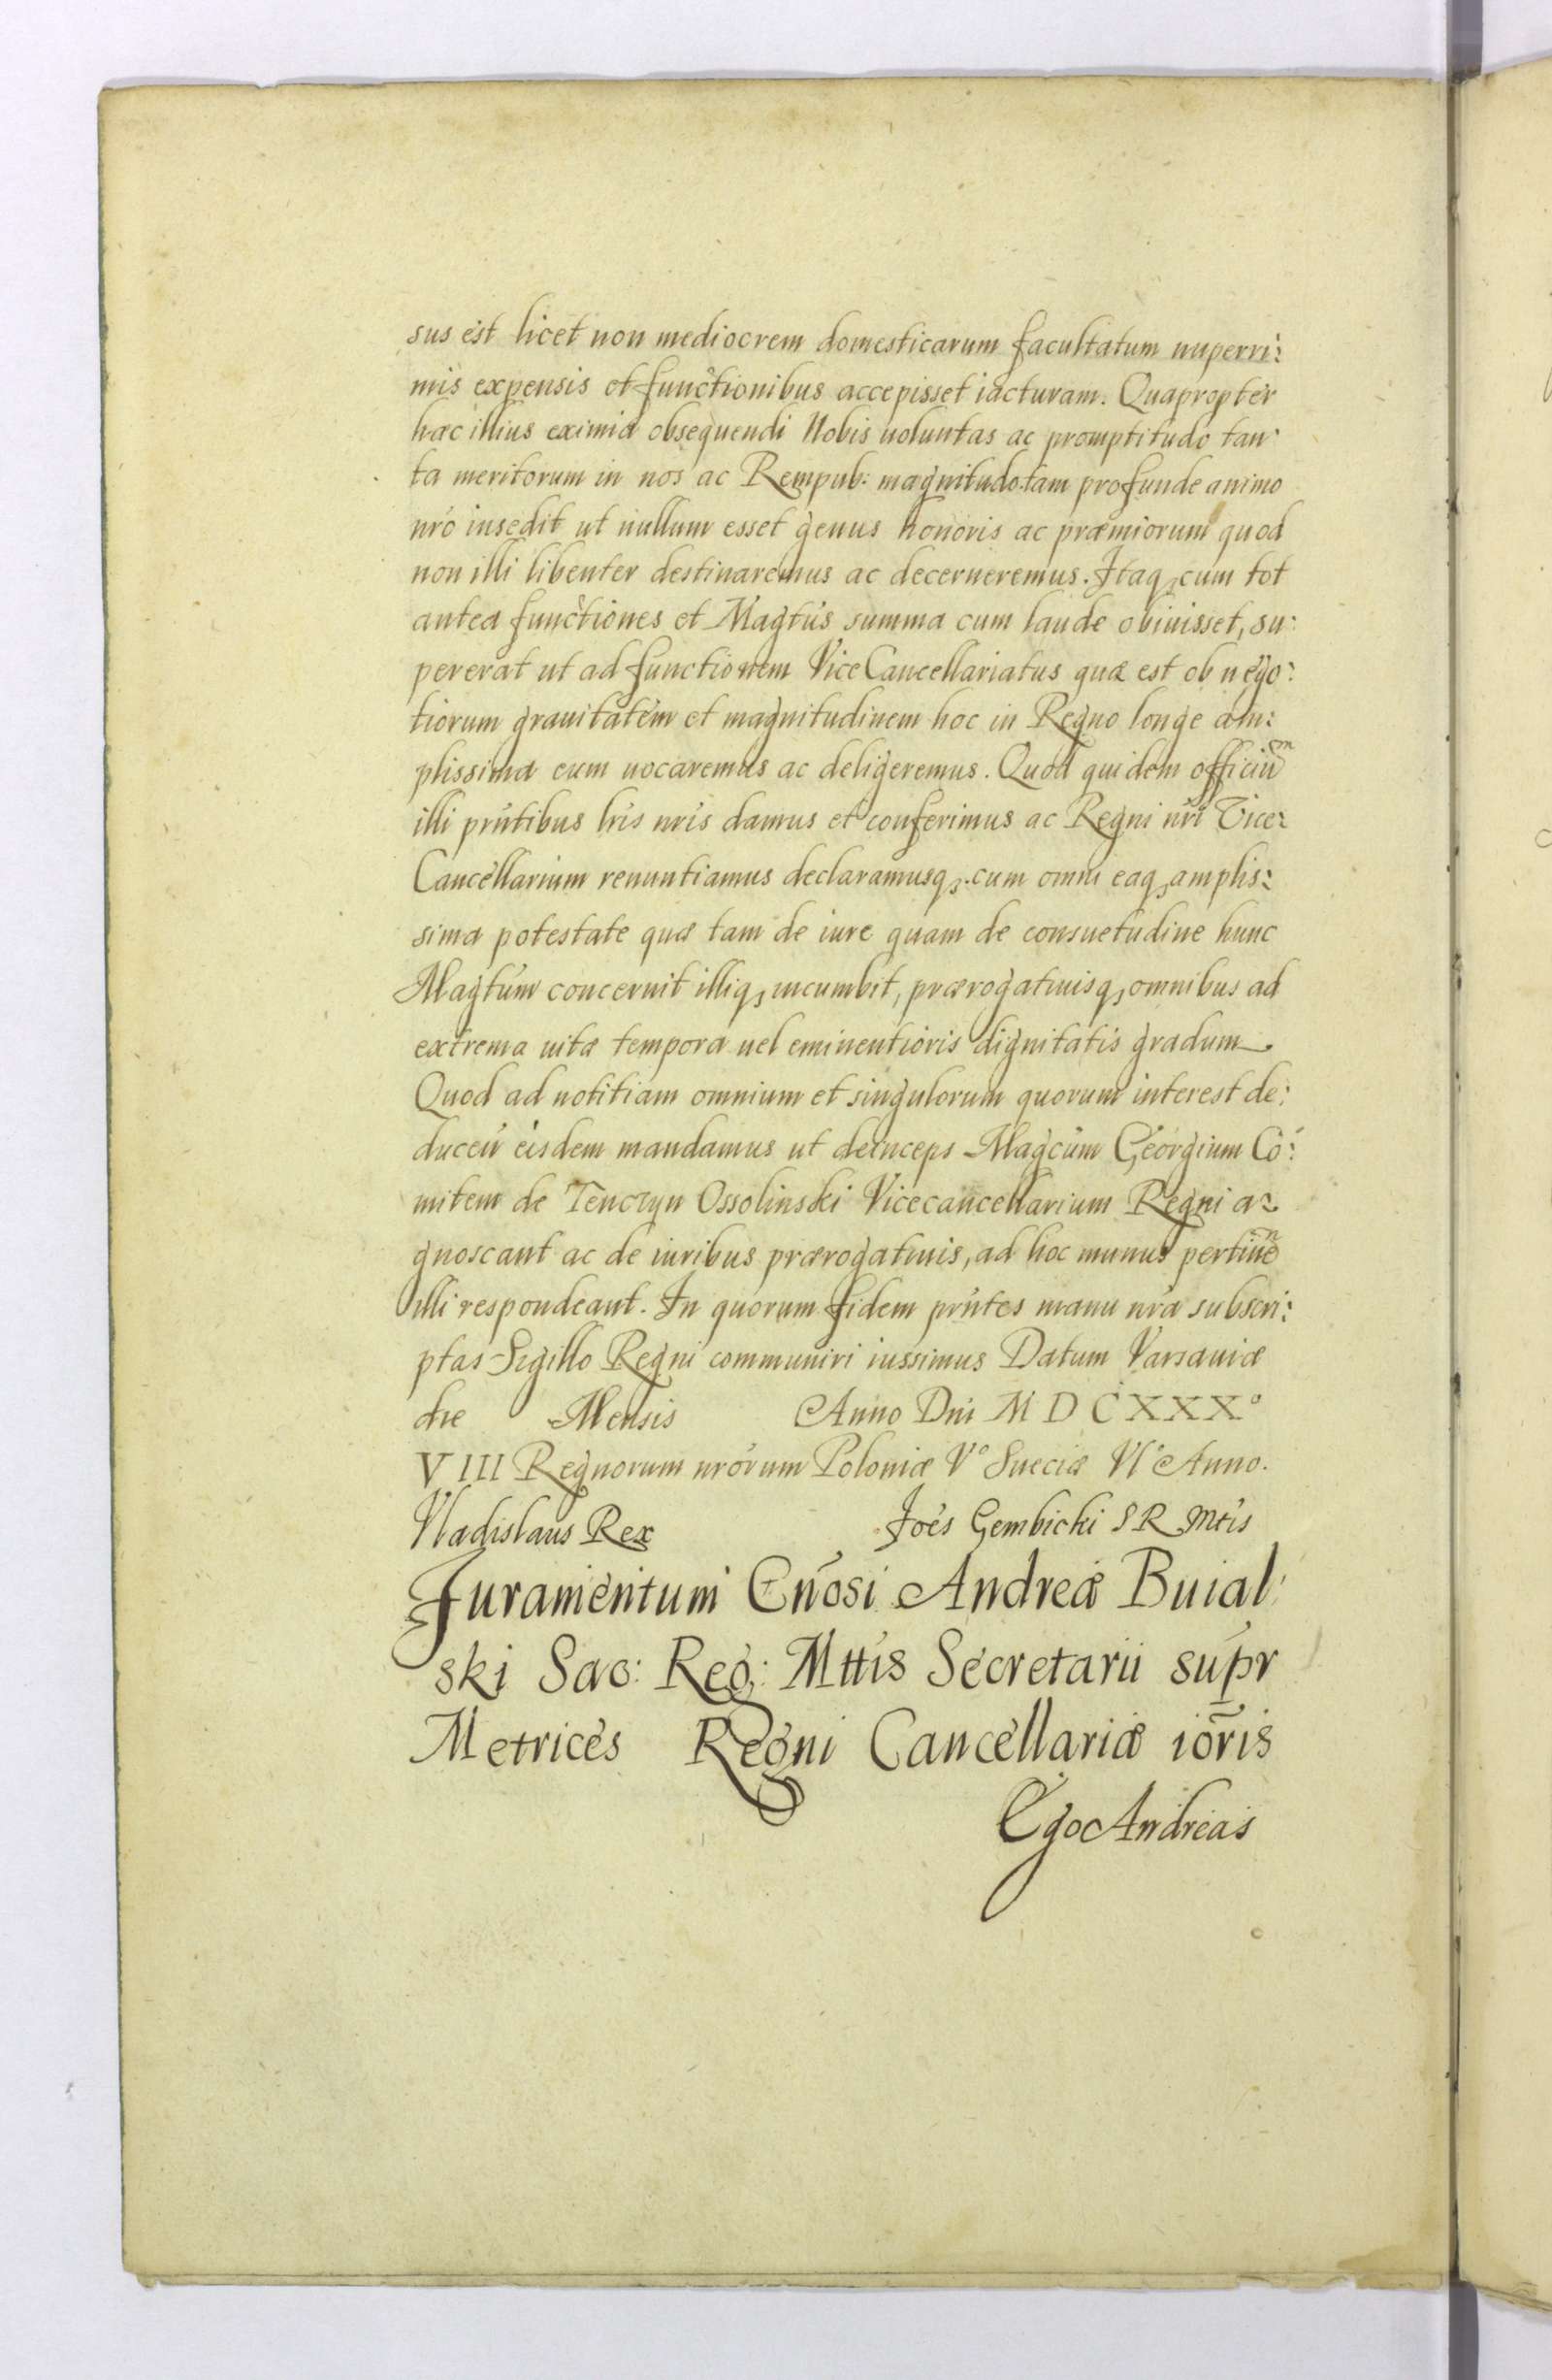 sus est licet non mediocrem domesticarum facultatum nuperri:
mis expensis et functionibus accepisset iacturam. Quapropter
hæc illius eximia obsequendi Nobis uoluntas ac promptitudo tan:
ta meritorum in nos ac Rempub: magnitudo tam profunde animo
nr̃o insedit ut nullum esset genus honoris ac præmiorum quod
non illi libenter destinaremus ac decerneremus. Itaq₃ cum tot
antea functiones et Magtũs summa cum laude obiuisset, su:
pererat ut ad functionem ViceCancellariatus quæ est ob nego:
tiorum grauitatem et magnitudinem hoc in Regno longe am:
plissima eum uocaremus ac deligeremus. Quod quidem officiũ
illi prñtibus lr̃is nr̃is damus et conferimus ac Regni nr̃i Vice:
Cancellarium renuntiamus declaramusq₃. cum omni eaq₃ amplis:
sima potestate quæ tam de iure quam de consuetudine hunc
Magtũm concernit illiq₃ incumbit, prærogatiuisq₃ omnibus ad
extrema uitæ tempora uel eminentioris dignitatis gradum.
Quod ad notitiam omnium et singulorum quorum interest de:
duceñ eisdem mandamus ut deinceps Magcũm Georgium Co:
mitem de Tenczyn Ossolinski Vicecancellarium Regni a:
gnoscant ac de iuribus prærogatiuis, ad hoc munus pertineñ
illi respondeant. In quorum fidem prñtes manu nr̃a subscri:
ptas Sigillo Regni communiri iussimus Datum Varsauiæ
die Mensis Anno Dni M D C XXX°
VIII Regnorum nrõrum Poloniæ V° Sueciæ VI° Anno.
Vladislaus Rex Joẽs Gembicki S R Mtis
Juramentum Gñosi Andreæ Buial:
ski Sac: Reg: Mttis Secretarii supr
Metrices Regni Cancellariæ iõris
Ego Andreas